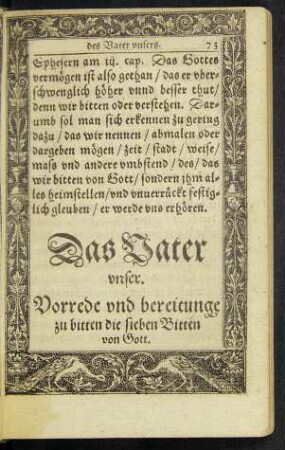 des Vater vnsers. 73
Ephesern am iij. cap. Das Gottes
vermögen ist also gethan / das er vber-
schwenglich höher vnnd besser thut /
denn wir bitten oder verstehen. Dar-
umb sol man sich erkennen zu gering
dazu / das wir nennen / abmalen oder
dargeben mögen / zeit / stadt / weise /
maß vnd andere vmbstend / des / das
wir bitten von Gott / sondern jhm al-
les heimstellen / vnd vnuerrückt festig-
lich gleuben / er werde vns erhören.
Das Vater
vnser.
Vorrede vnd bereitunge
zu bitten die sieben Bitten
von Gott.